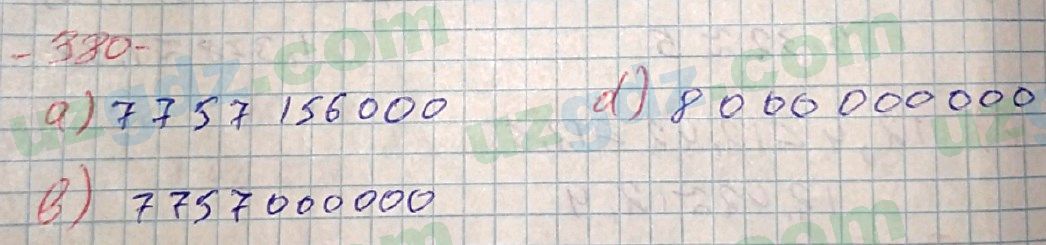 - 330 -
a) 7757 156000
d) 8000 000000
b) 7757000000
uzgdz.com